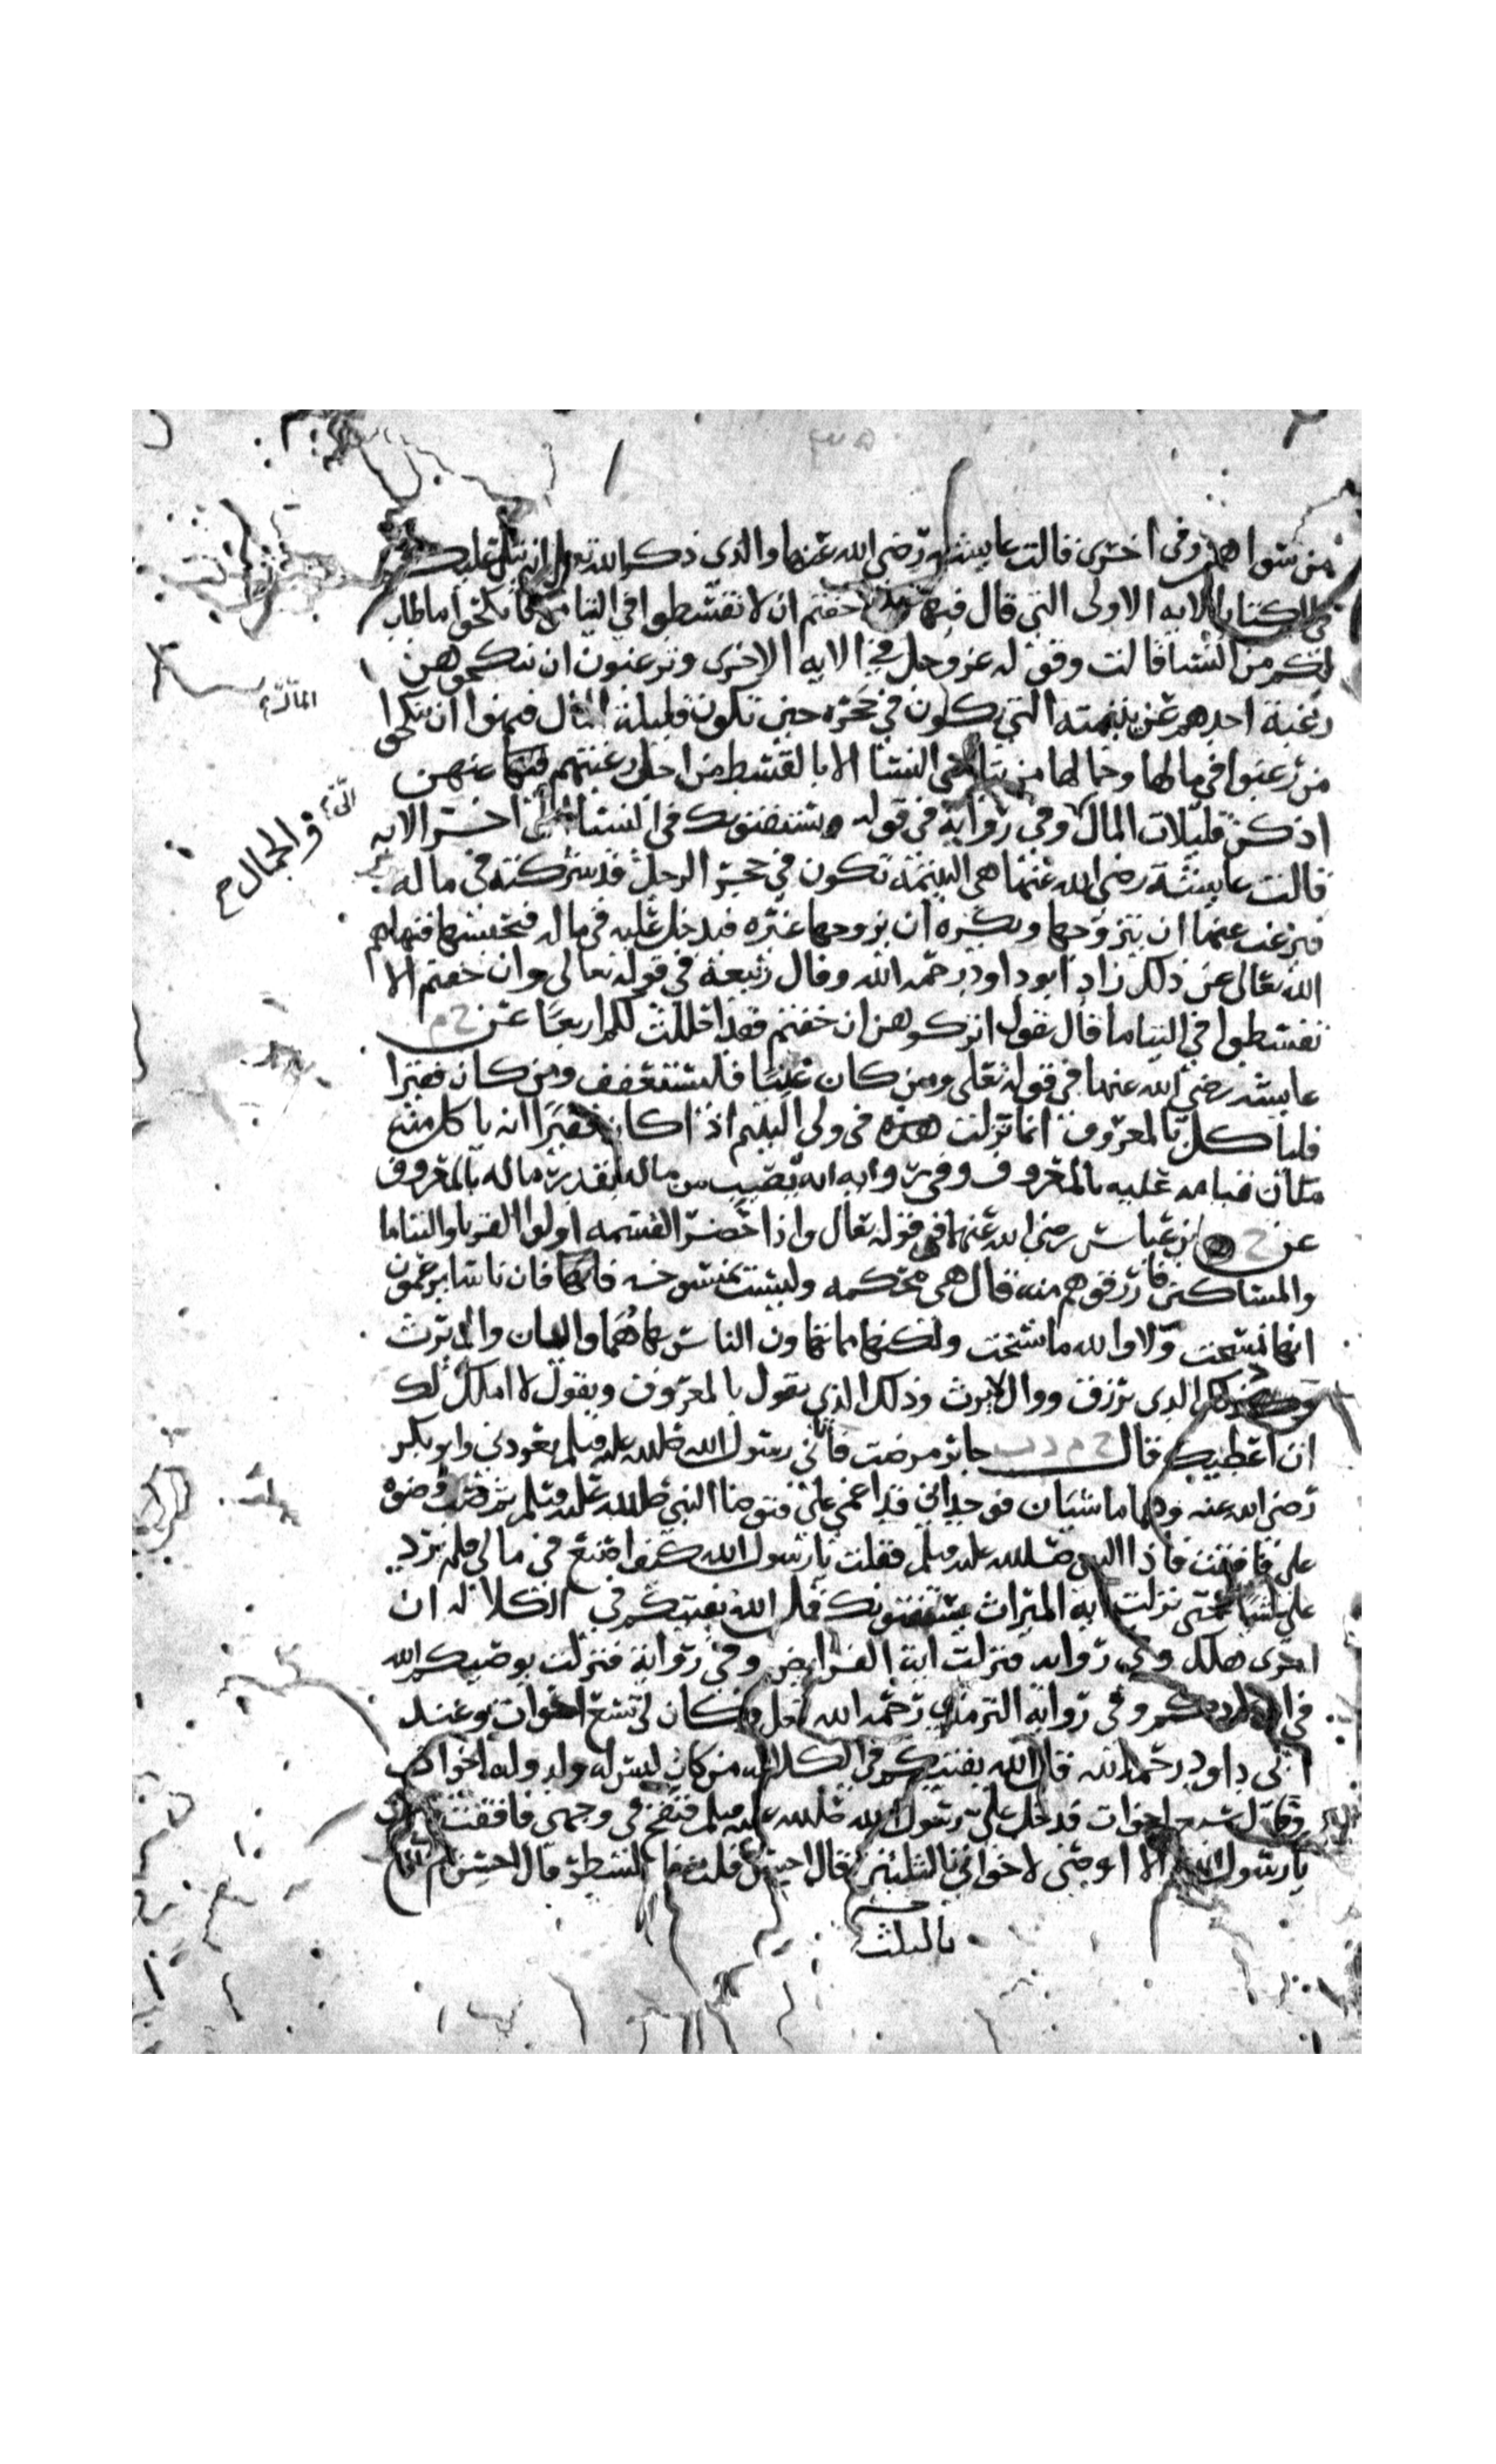 من سواهن وفى اخرى قالت عايشه رضى الله عنها والذى ذكر الله تعالى انه يتلى عليكم
في الكتاب الايه الاولى التي قال فيها خفتم ان لا تقسطوا في اليتامى فانكحوا ما طاب
لكم من النسا قالت وقوله عز وجل في الايه الاخرى وترغبون ان تنكحوهن
رغبة احدهم عن يتيمته التي تكون في حجره حين تكون قليلة المال فنهوا ان ينكحوا
من رغبوا في مالها وجمالها من يتامى النسا الا بالقسط من اجل رغبتهم عنهن
اذ كن قليلات المال وفي رواية في قوله ويستفتونك في النسا الى اخر الايه
والجمال
قالت عايشة رضى الله عنها هي اليتيمة تكون في حجر الرجل قد شركته في ماله
فيرغب عنها ان يتزوجها ويكره ان يزوجها غيره فيدخل عليه في ماله فيحبسها فنهاهم
الله تعالى عن ذلك زاد ابو داود رحمه الله وقال ربيعة في قوله تعالى وان خفتم الا
تقسطوا في اليتاما قال يقول اتركوهن ان خفتم فقد احللت لكم اربعا عن خ م
عايشه رضى الله عنها في قوله تعلى ومن كان غنيا فليستعفف ومن كان فقيرا
فلياكل بالمعروف انما نزلت هذه في ولي اليتيم اذا كان فقيرا انه ياكل منه
مكان قيامه عليه بالمعروف وفي روايه انه يصيب من ماله بقدر ماله بالمعروف
عن خ ابن عباس رضى الله عنهما في قوله تعال واذا حضر القسمه اولوا القربا واليتاما
والمساكين فارزقوهم منه قال هي محكمه وليست بمنسوخه فان ناسا يزعمون
انها نسخت ولا والله ما نسخت ولكنها مما تهاون الناس بها هما واليان وال يرث
الذى يرزق ووال لا يرث وذلك الذي يقول بالمعروف ويقول لا املك لك
ان اعطيك قال خ م د ت جابر مرضت فاتاني رسول الله صلى الله عليه وسلم يعودني وابو بكر
رضى الله عنه وهما ماشيان فوجداني قد اغمي علي فتوضا النبي صلى الله عليه وسلم ثم صب وضوه
على فافقت فاذا النبي صلى الله عليه وسلم فقلت يا رسول الله كيف اصنع في مالي فلم يرد
علي شيا حتى نزلت اية الميراث يستفتونك قل الله يفتيكم في الكلاله ان
امرى هلك وفي روايه فنزلت اية الفرايض وفي رواية فنزلت يوصيكم الله
في اولادكم وفي رواية الترمذي رحمه الله وكان لي تسع اخوات وعند
ابي داود رحمه الله قال الله يفتيكم في الكلاله من كان ليس له ولد وله اخوات
سبع اخوات فدخل علي رسول الله صلى الله عليه وسلم فنفخ في وجهي فافقت
يا رسول الله الا اوصى لاخواتي بالثلثين قال احسن قلت بالشطر قال احسن ثم
بالثلث